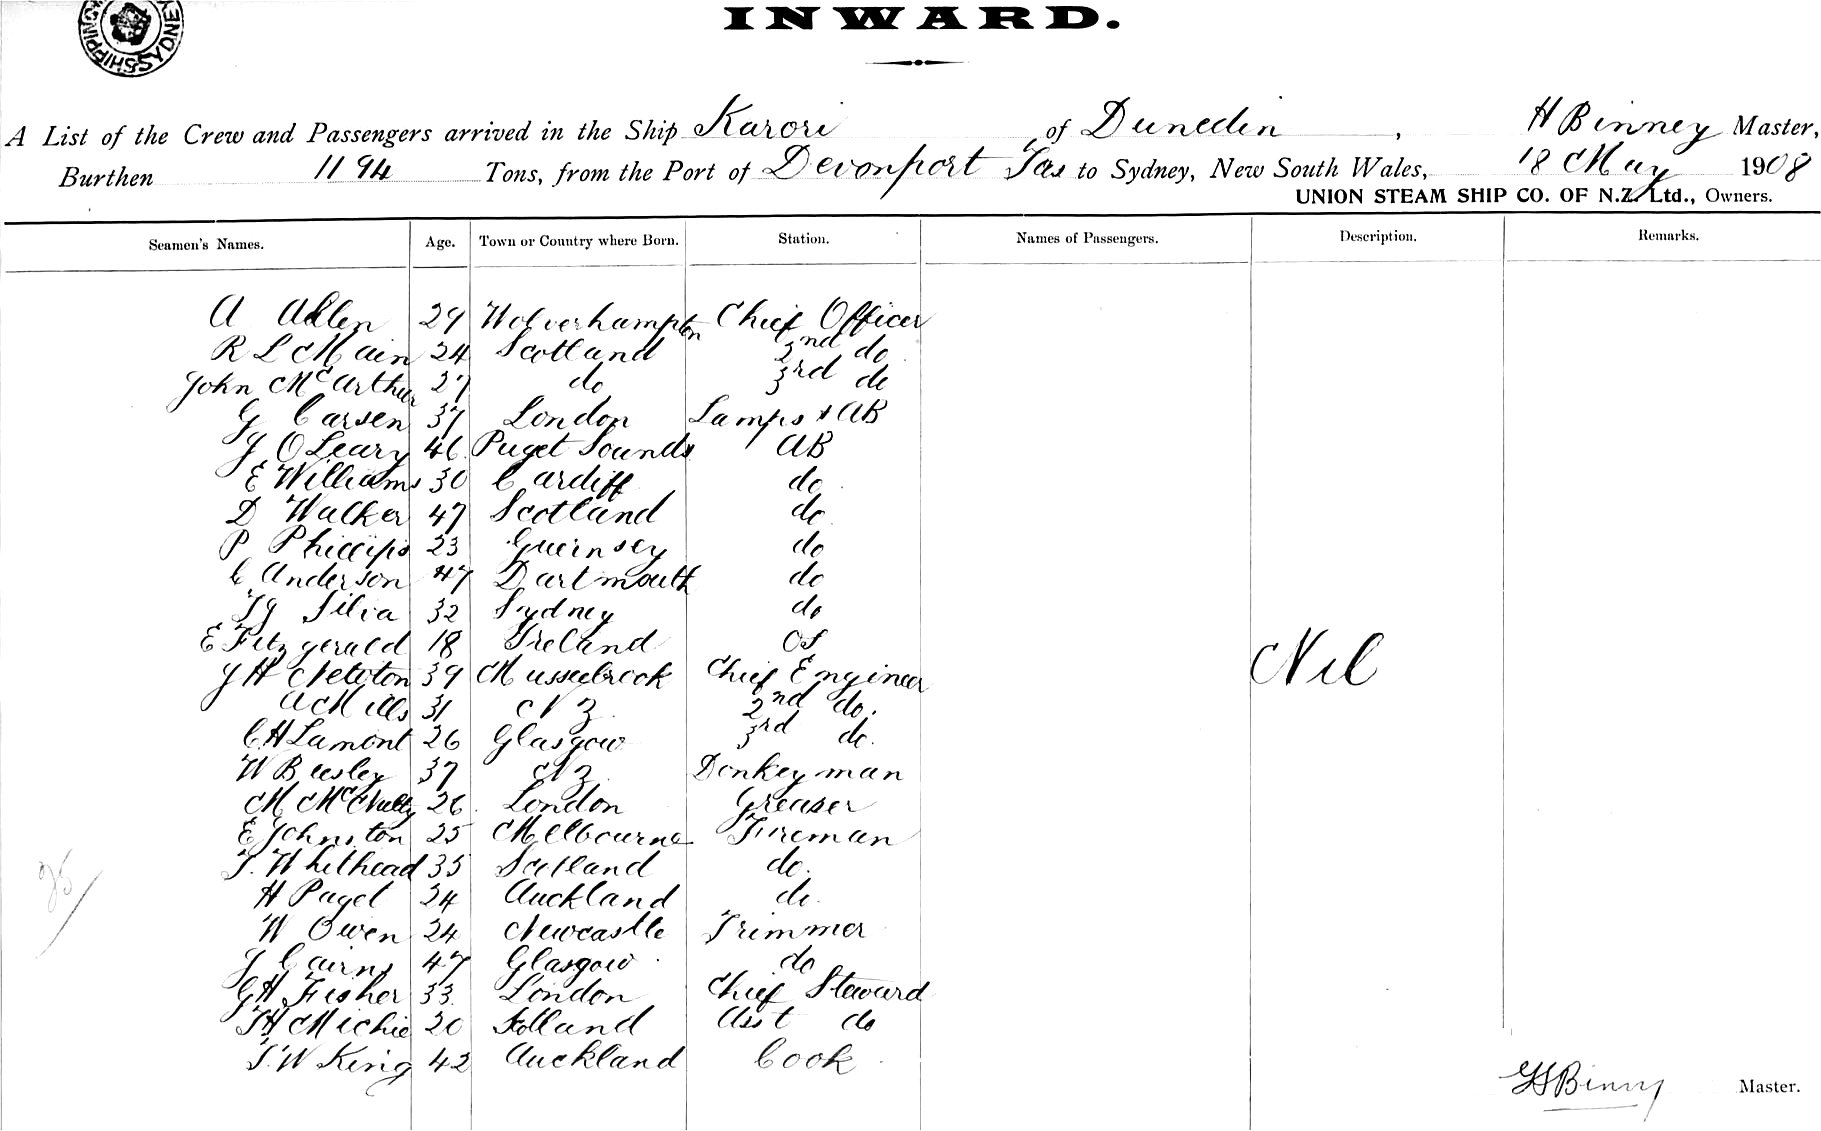 SHIPPING SYDNEY
INWARD.
A List of the Crew and Passengers arrived in the Ship Karori of Dunedin, H Binney Master,
Burthen 1194 Tons, from the Port of Devonport Tas to Sydney, New South Wales, 18 May 1908
UNION STEAM SHIP CO. OF N.Z. Ltd., Owners.
Seamen's Names. Age. Town or Country where Born. Station. Names of Passengers. Description. Remarks.
A Allen 29 Wolverhampton Chief Officer
R L Main 24 Scotland 2nd do
John McArthur 27 do 3rd do
G Carsen 37 London Lamps & AB
J OLeary 46 Puget Sounds AB
E Williams 30 Cardiff do
D Walker 47 Scotland do
P Phillips 23 Guernsey do
C Anderson 47 Dartmouth do
Silva 32 Sydney do
E Fitzgerald 18 Ireland OS
Nil
J H Newton 39 Musselbrook Chief Engineer
A Mills 31 NZ 2nd do.
C H Lamont 26 Glasgow 3rd do.
W Beesley 37 NZ. Donkeyman
M McNulty 26. London Greaser
E Johnston 25 Melbourne Fireman
T. Whithead 35 Scotland do.
25
H Paget 24 Auckland do.
W Owen 24 Newcastle Trimmer
J Cairns 47 Glasgow do
G H Fisher 33. London Chief Steward
T H Michie 20 Asst do
T. W King 42 Auckland Cook
Binny Master.